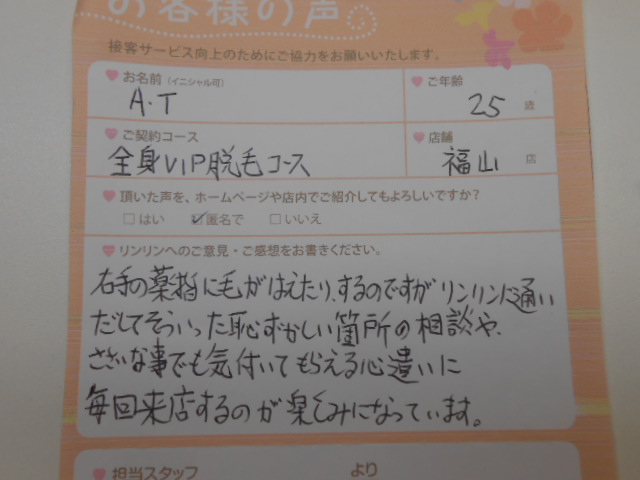 お客様の声
接客サービス向上のためにご協力をお願いいたします。
お名前(イニシャル可)
A・T
ご年齢
25歳
ご契約コース
全身VIP脱毛コース
店舗
福山店
頂いた声を、ホームページや店内でご紹介してもよろしいですか?
□はい ☑匿名で □いいえ
リンリンへのご意見・ご感想をお書きください。
右手の薬指に毛がはえたりするのですがリンリンに通い
だしてそういった恥ずかしい箇所の相談や、
ささいな事でも気付いてもらえる心遣いに
毎回来店するのが楽しみになっています。
担当スタッフ より